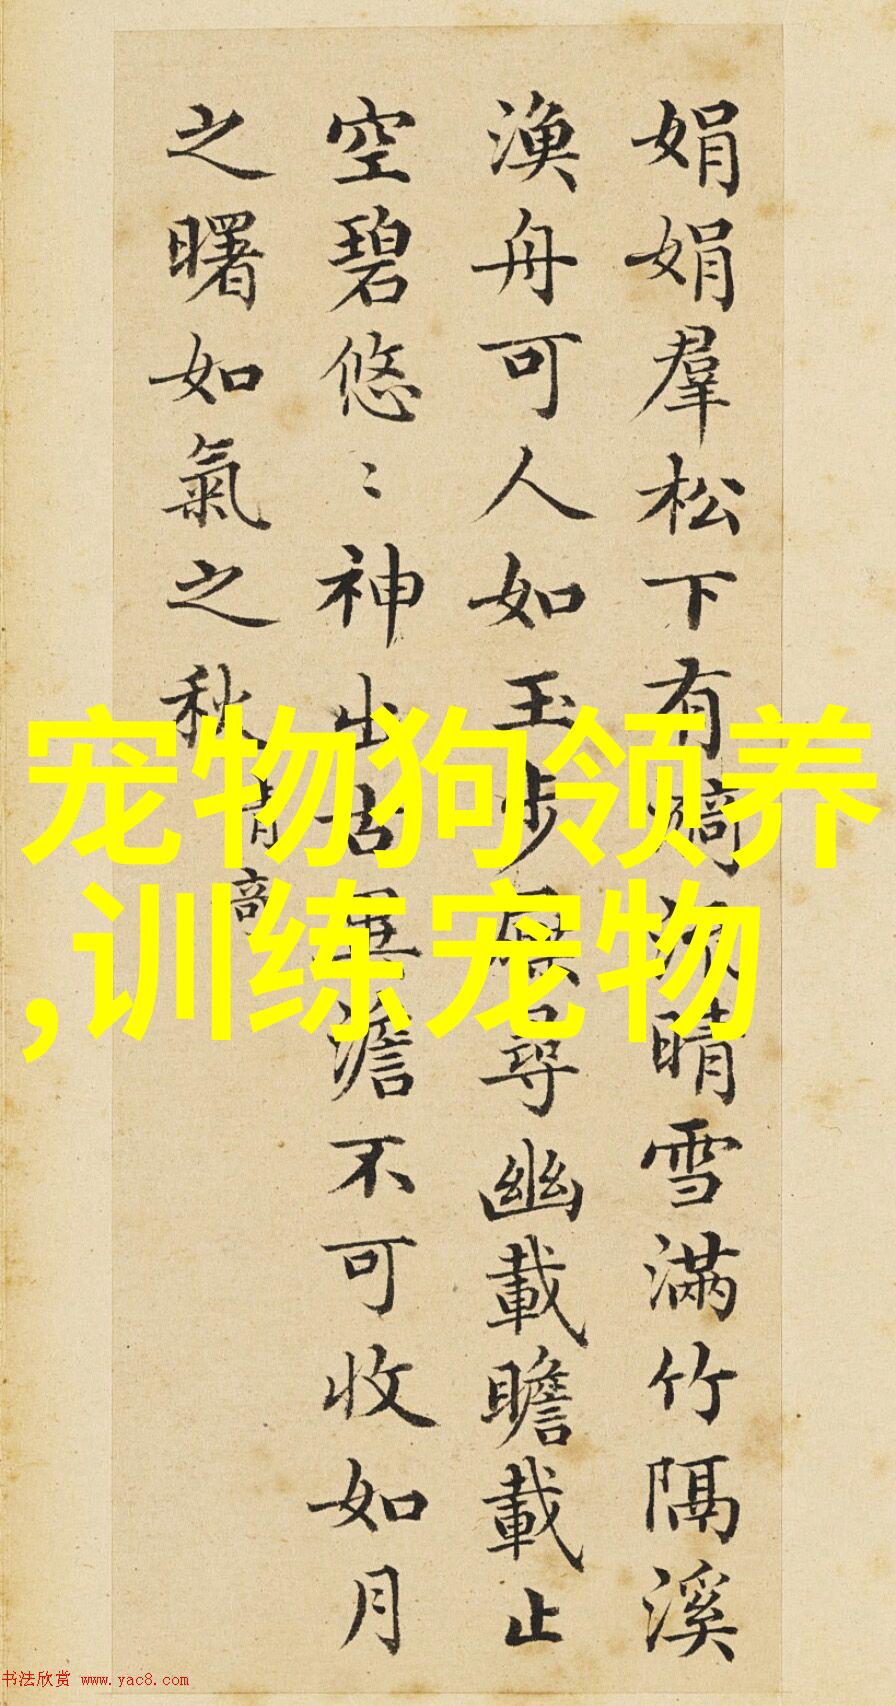 娟娟羣松下有漪流晴雪滿竹隔溪
漁舟可人如玉步屧尋幽載瞻載止
空碧悠〻神出古異澹不可收如月
之曙如氣之秋 清奇
宠物狗领养
,训练宠物
书法欣赏 www.yac8.com